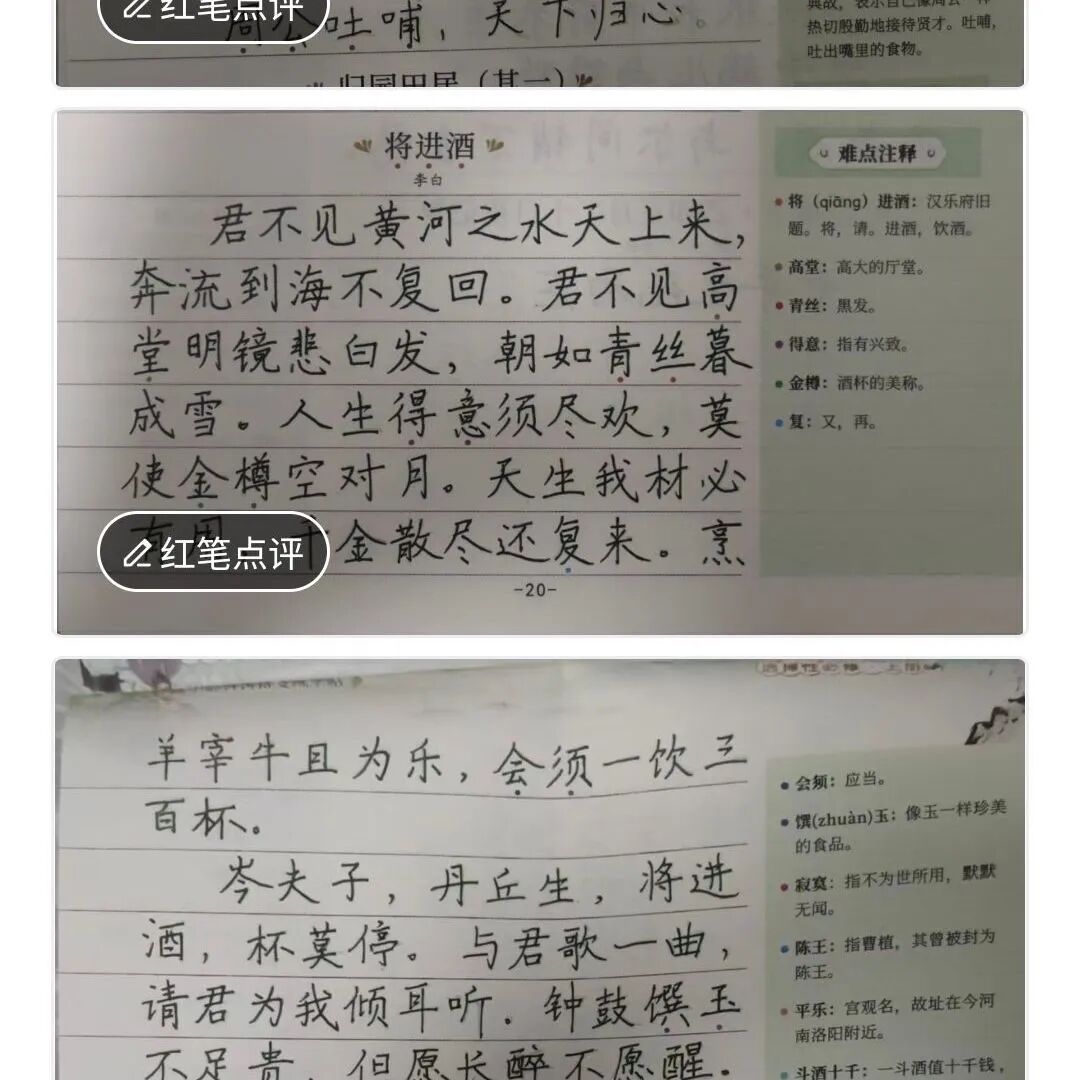 红笔点评
周公吐哺，天下归心。
典故，表示自己像周公一样
热切殷勤地接待贤才。吐哺，
吐出嘴里的食物。
归园田居（其一）
将进酒
李白
君不见黄河之水天上来，
奔流到海不复回。君不见高
堂明镜悲白发，朝如青丝暮
成雪。人生得意须尽欢，莫
使金樽空对月。天生我材必
有用 千金散尽还复来。烹
红笔点评
-20-
难点注释
将（qiāng）进酒：汉乐府旧
题。将，请。进酒，饮酒。
高堂：高大的厅堂。
青丝：黑发。
得意：指有兴致。
金樽：酒杯的美称。
复：又，再。
羊宰牛且为乐，会须一饮三
百杯。
岑夫子，丹丘生，将进
酒，杯莫停。与君歌一曲，
请君为我倾耳听。钟鼓馔玉
不足贵，但愿长醉不愿醒.
会须：应当。
馔(zhuàn)玉：像玉一样珍美
的食品。
寂寞：指不为世所用，默默
无闻。
陈王：指曹植，其曾被封为
陈王。
平乐：宫观名，故址在今河
南洛阳附近。
斗酒十千：一斗酒值十千钱，